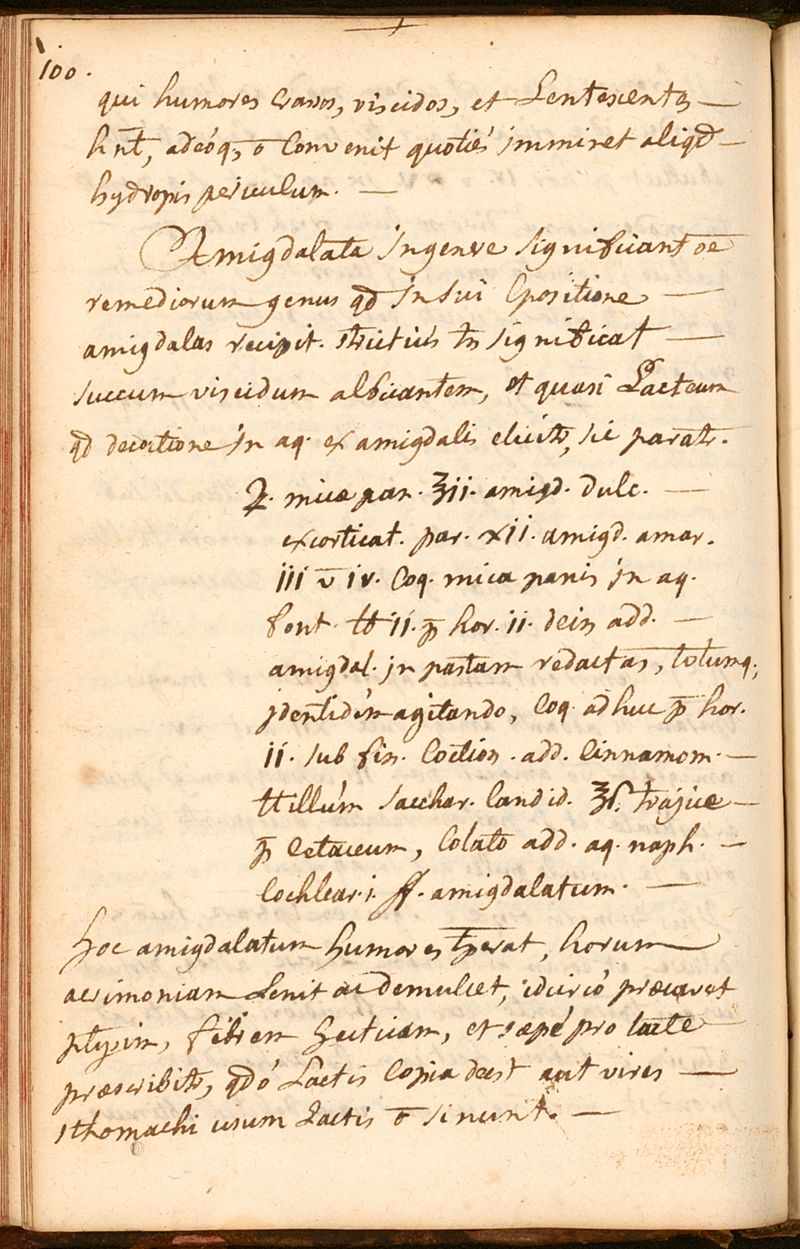 100.
qui humores crasos, viscidos, et Lentescentes —
hnt, adeóq; ō Convenit quotiés imminet aliqd —
hydropis periculum. —
Amigdalata in genere significant oē
remediorum genus qd in sui Cpositione —
amigdalas recipit. strictius tn significat —
succum viscidum albicantem, et quasi Lacteum
qd decoctione in aq. ex amigdalis elicitr, sic paratr.
℞. micæ pan. ʒii. amigd. dulc. —
excorticat. par. xii. amigd. amar.
iii v̄ iv. Coq. mica panis in aq.
font. ℔ ii. p̄ hor. ii. dein add. —
amigdal. in pastam redactas, totumq;
identidém agitando, Coq. adhuc p̄ hor.
ii. sub fin. Coction. add. Cinnamom. —
ttillúm sacchar. Candid. ℥ß. trajice —
p̄ Cetaceum, Colato add. aq. naph. —
Cochlear. i. ff. amigdalatum. —
hoc amigdalatum humores tperat, horum
acrimoniam Lenit ac demulcet, idcircó præcavet
ptysim, febrem hecticam, et sæpé pro lacte
præscribitr, qdó Lactis Copia deest aut vires —
sthomachi usum Lactis ō sinunt. —